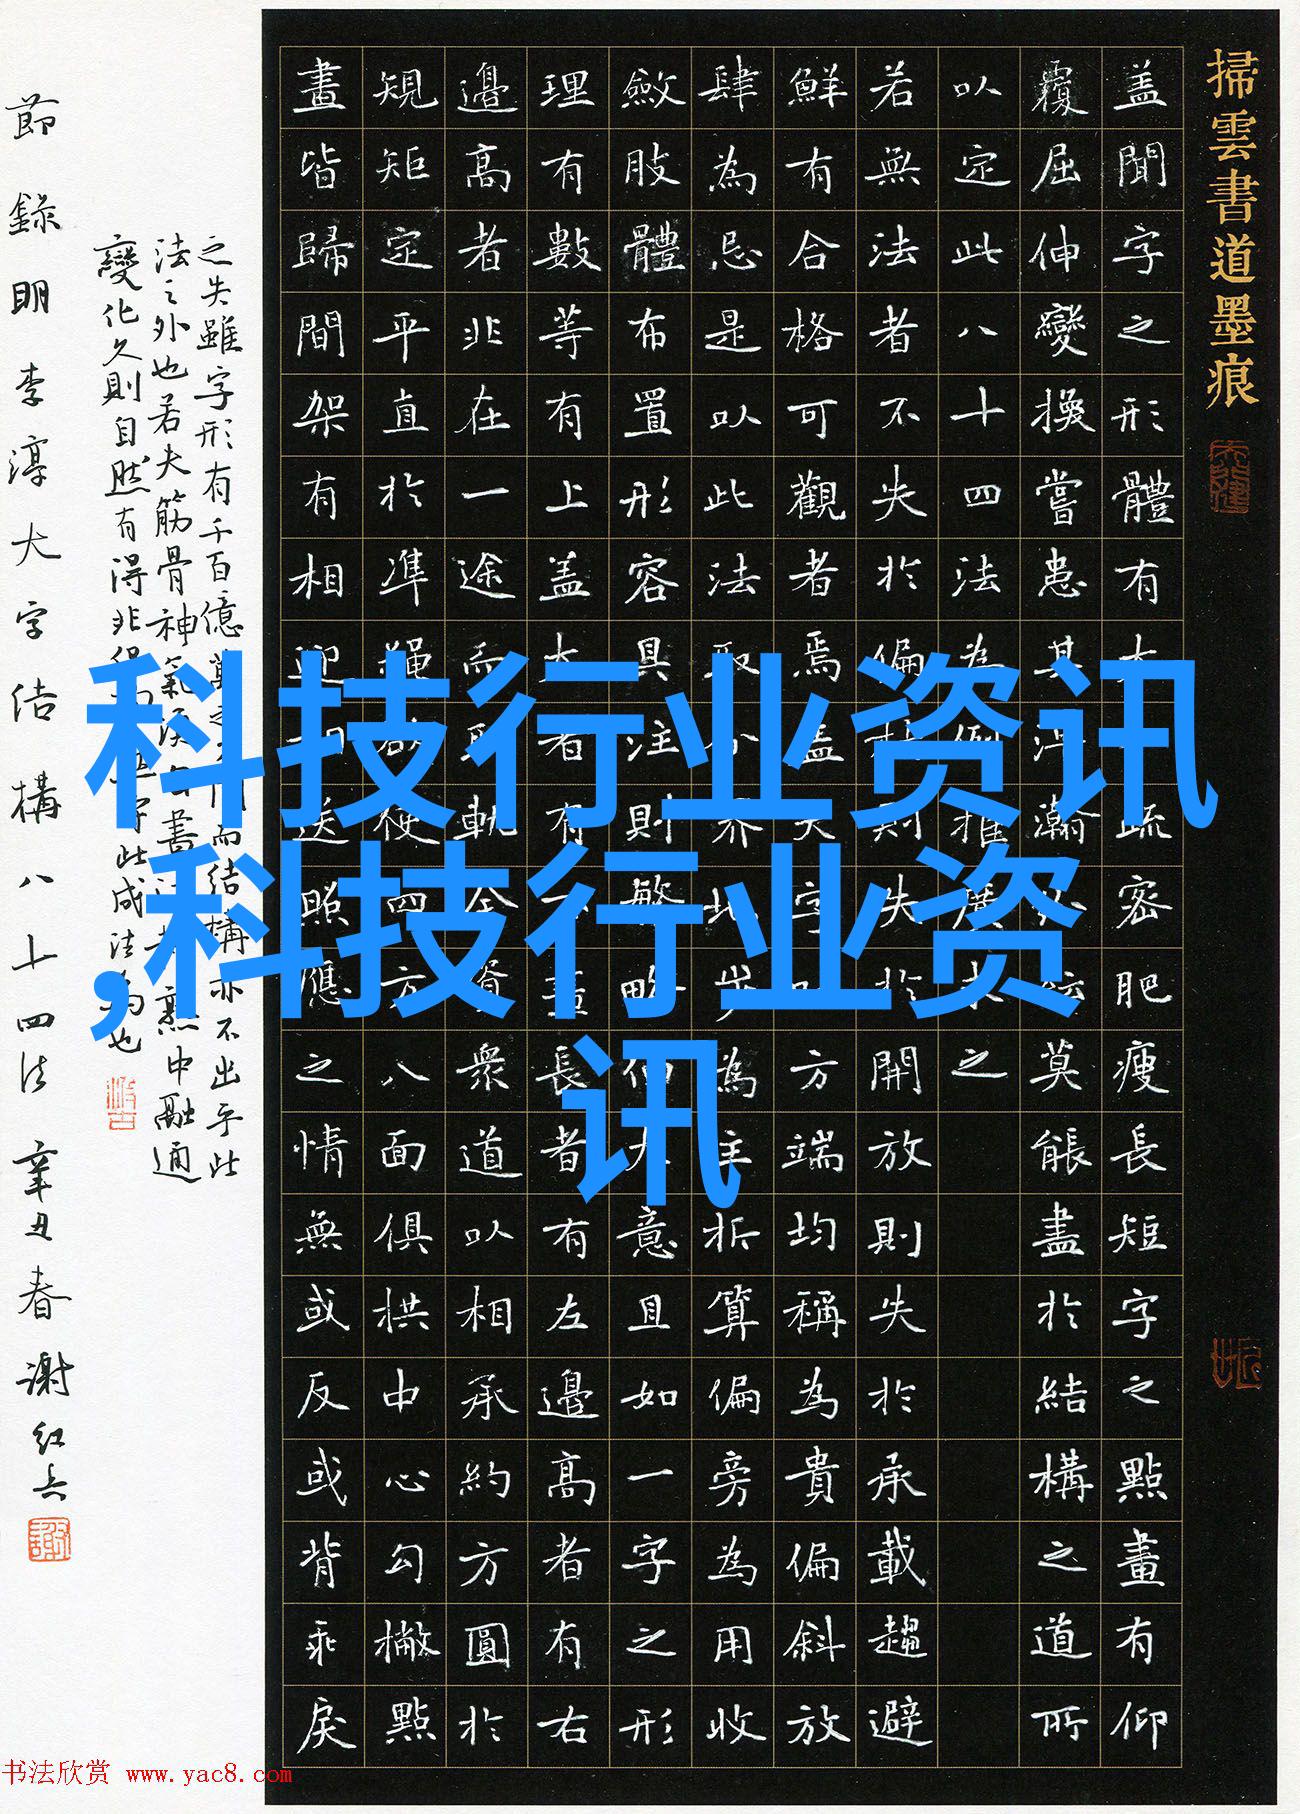 掃雲書道墨痕
盖聞字之形體有大疏密肥瘦長短字之點畫有仰
覆屈伸變換嘗患其浩瀚紜莫能盡於結構之道所
以定此八十四法為例推廣求之
若無法者不失於偏枯則失於開放則失於承載趨避
鮮有合格可觀者焉盖夫字方端均稱為貴偏斜放
肆為忌是以此法取分界地步為主折算偏旁為用收
斂肢體布置形容具注則繁略伯大意且如一字之形
理有數等有上盖大者有畫長者有左邊高者有右
邊高者非在一途而取軌全胥衆道以相承約方圓於
規矩定平直於準繩欲使四方八面俱拱中心勾撇點
畫皆歸間架有相迎送照應之情無或反或背乖戾
之失雖字形有千百億萬之同而結構亦不出乎此
法之外也若夫筋骨神氣須自書法熟中融通
變化久則自然有得非字此成法為也
節錄明李淳大字结構八十四法 辛丑春謝紅兵
科技行业资讯
,科技行业资
讯
书法欣赏 www.yac8.com